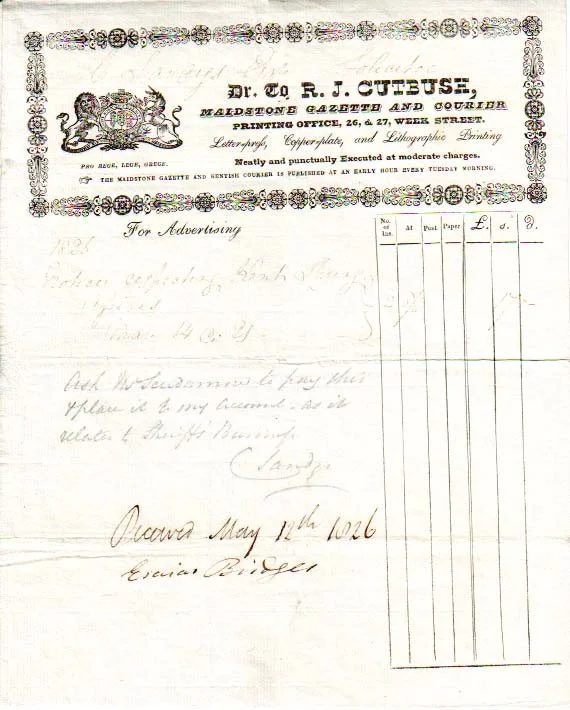 C Sandys Esqr
Dr. To R. J. CUTBUSH,
MAIDSTONE GAZETTE AND COURIER
PRINTING OFFICE, 26, & 27, WEEK STREET.
Letter-press, Copper-plate, and Lithographic Printing
Neatly and punctually Executed at moderate charges.
PRO REGE, LEGE, GREGE.
THE MAIDSTONE GAZETTE AND KENTISH COURIER IS PUBLISHED AT AN EARLY HOUR EVERY TUESDAY MORNING.
For Advertising
No. of Ins. At Post Paper £. s. d.
1826
Notice respecting Kent
14 & 21
Ask Mr Scudamore to pay this
& place it to my account - as it
relates to Sheriffs Business
C Sandys
Received May 12th 1826
Esaias Bridges